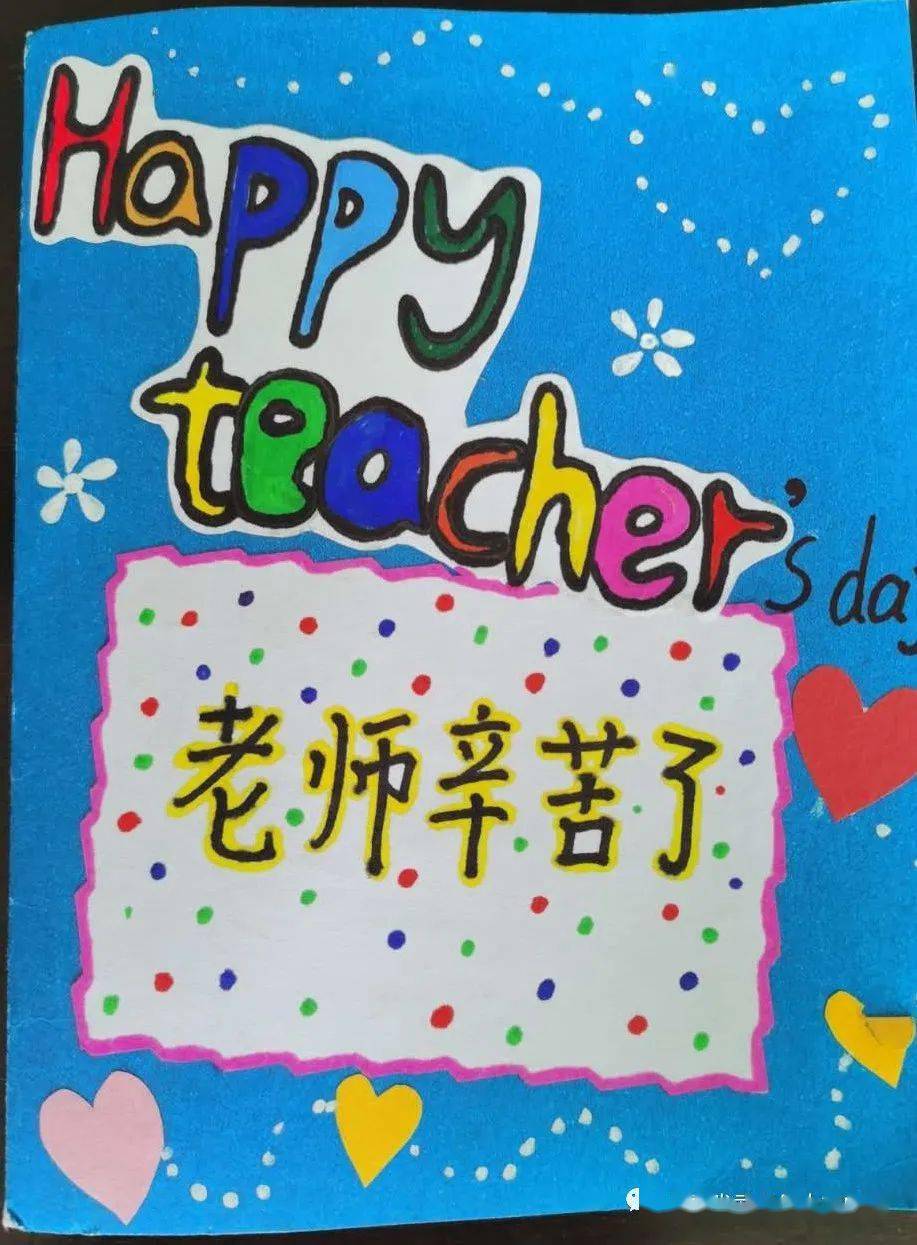 Happy
teacher's day
老师辛苦了